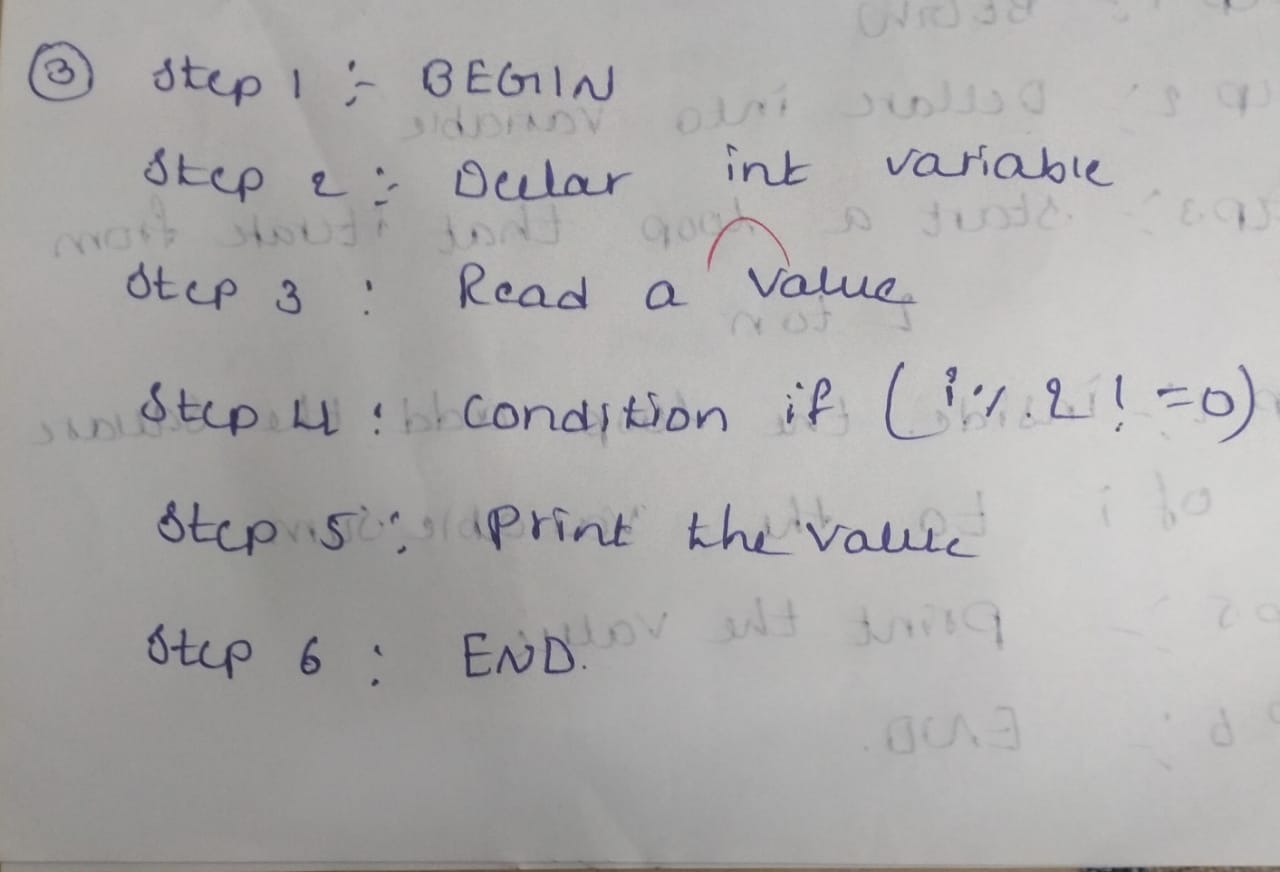 ③ Step 1 :- BEGIN
Step 2 :- Declar int variable
Step 3 : Read a value
Step 4 : Condition if ( i % 2 ! =0)
Step 5 : Print the value
Step 6 : END.